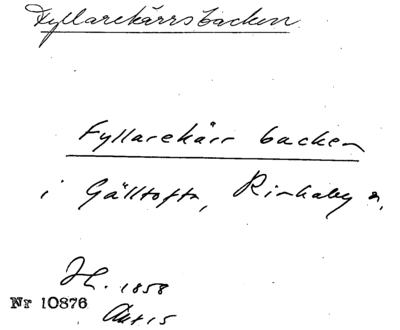 Fyllarekärrsbacken
Fyllarekärr backen
i Gälltofta, Rinkaby s.
H. 1858
Nr 10876
Akt 15